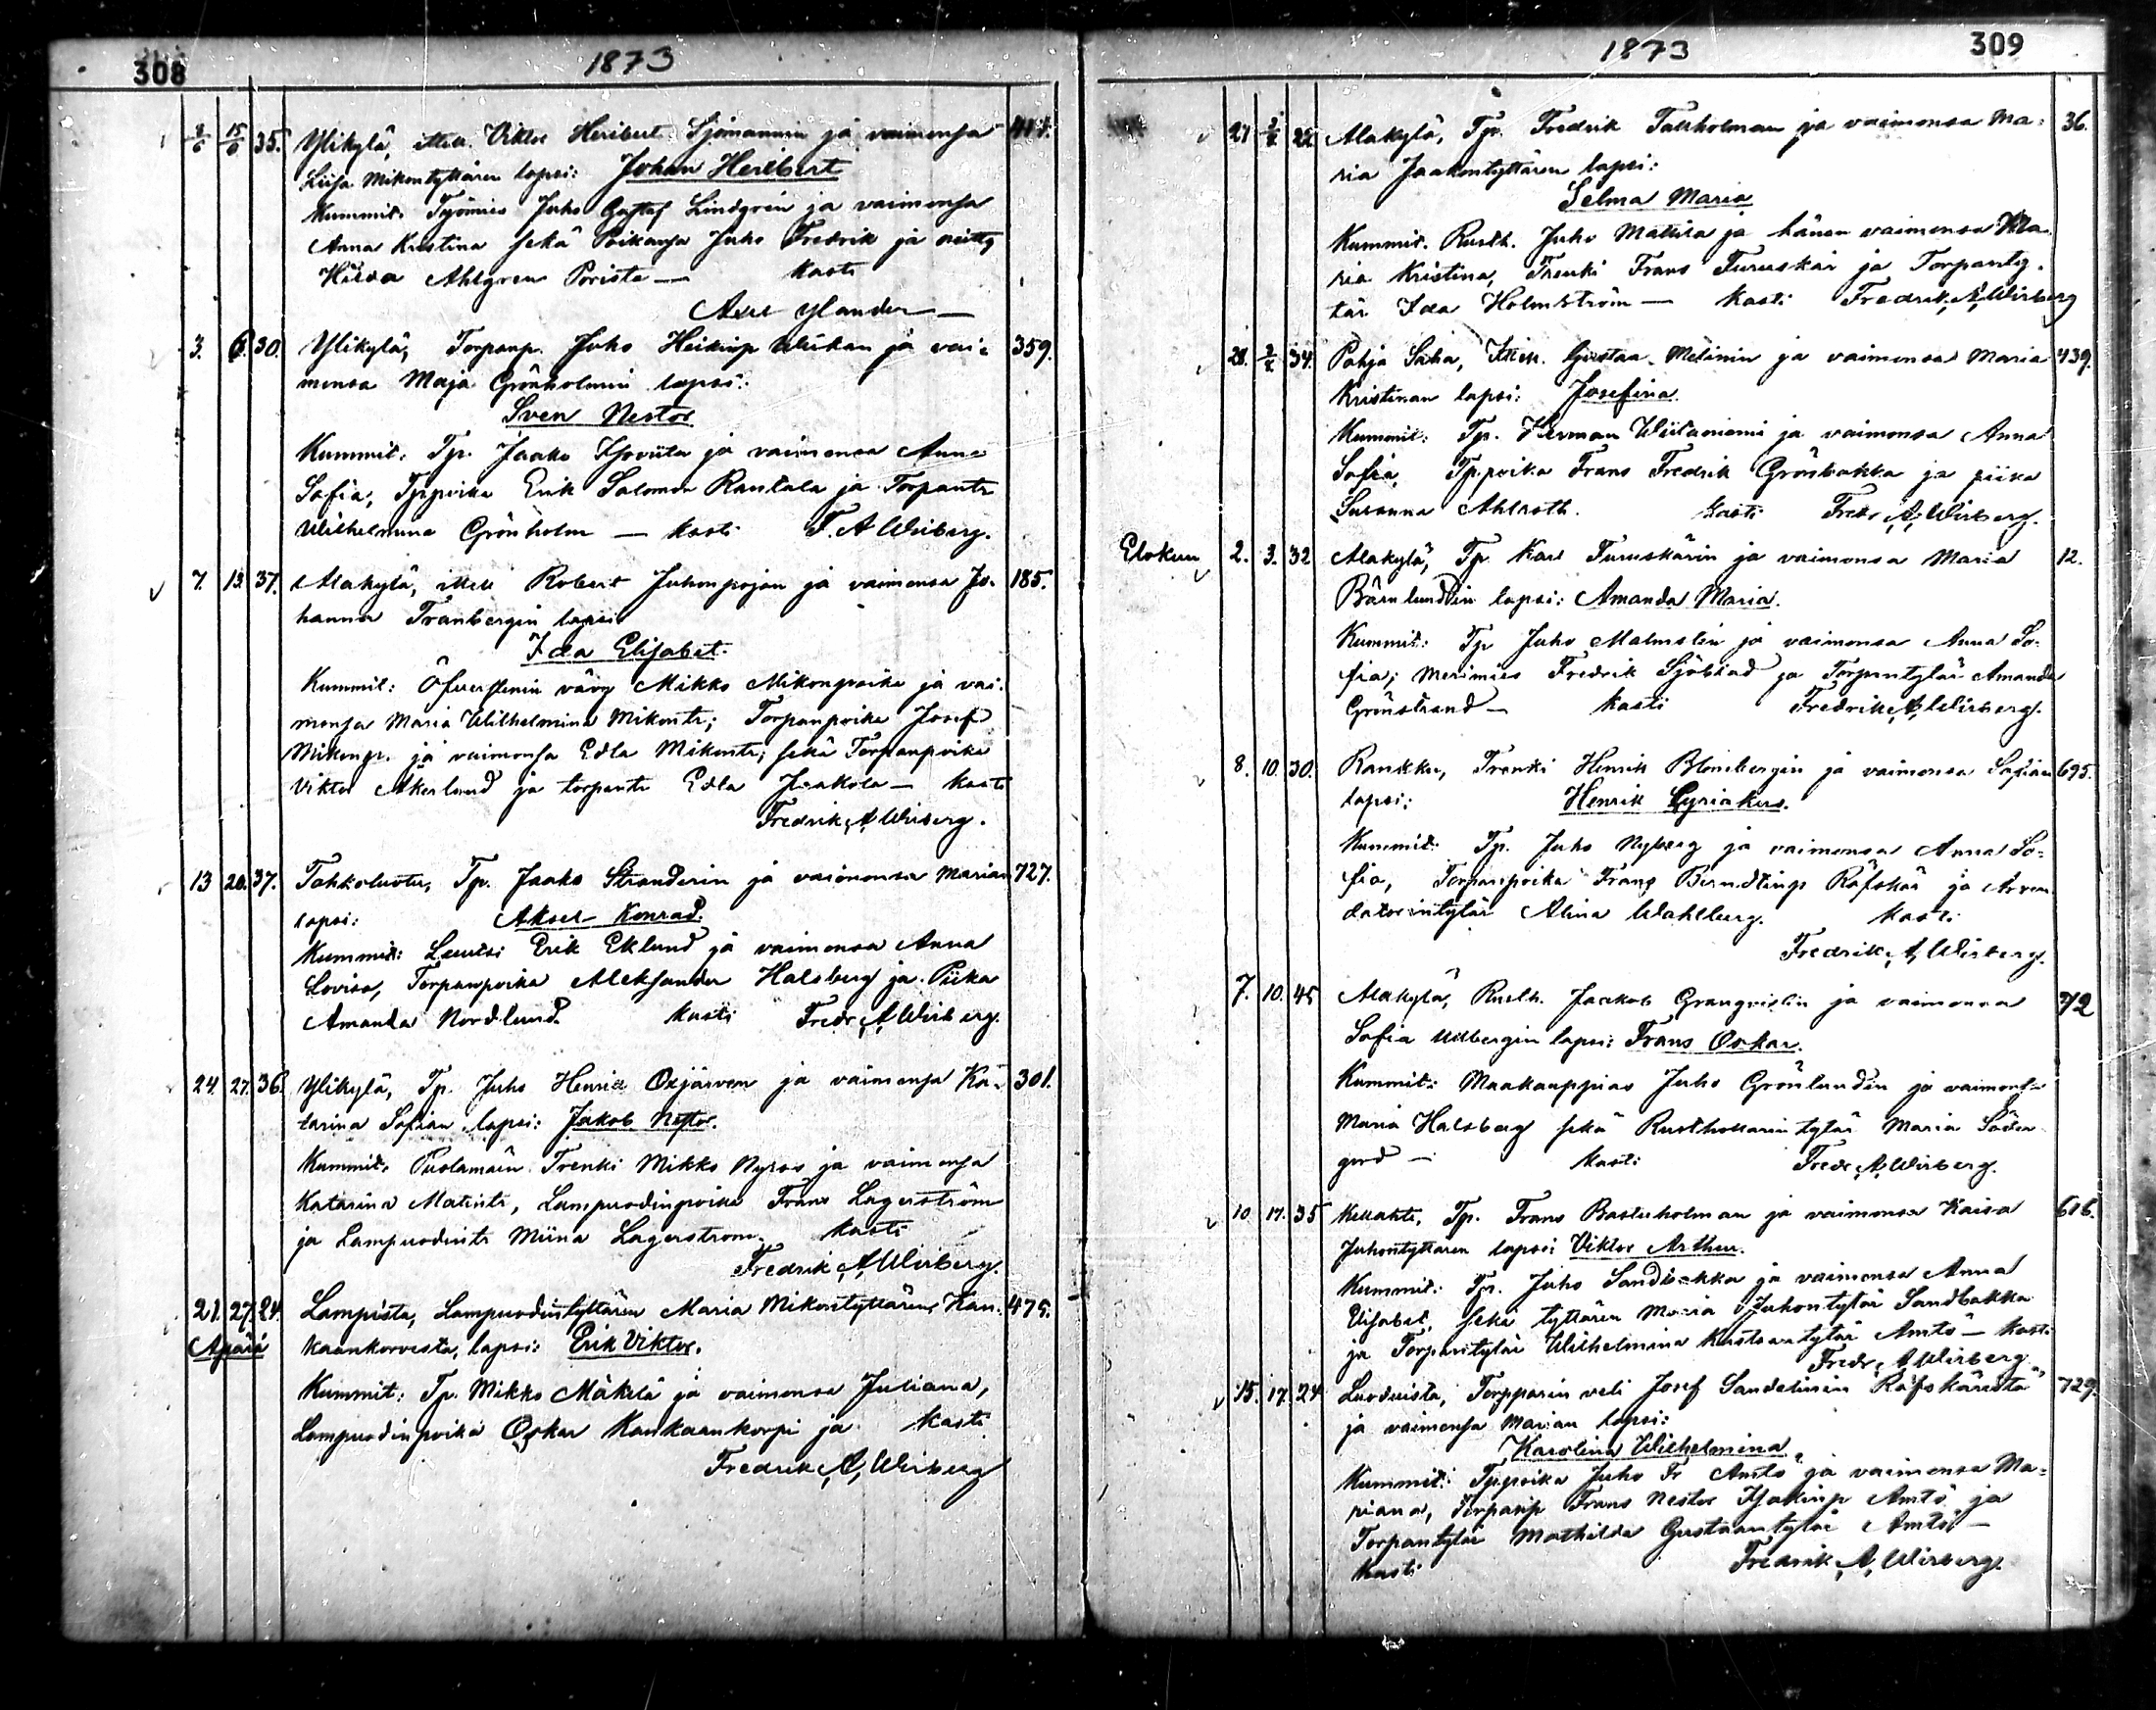 308
1873
8/6 15/6 35. Ylikylä, Viktor Heribert Sjömannin ja vaimonsa
Liisa Mikontyttären lapsi: Johan Heribert
Kummit. Työmies Juho Gustaf Lindgren ja vaimonsa
Anna Kristina sekä Poikansa Juho Fredrik ja neitsy
Hilda Ahlgren Porista — Kasti
Axel Ylander —
3. 6. 30. Ylikylä, Torpanp. Juho Heikinp ja vai- 359.
monsa Maja Grönholmin lapsi:
Sven Nestor
Kummit. Tp. Jaako ja vaimonsa Anna
Sofia, Tp.poika Erik Salomon Rantala ja Torpantr
Wilhelmina Grönholm — Kasti F. A Wirberg.
7. 13. 37. Alakylä, itell Robert Juhonpojan ja vaimonsa Jo- 185.
hanna Tranbergin lapsi
Ida Elisabet.
Kummit: vävy Mikko Mikonpoika ja vai-
monsa Maria Wilhelmina Mikontr; Torpanpoika Josef
Mikonp. ja vaimonsa Edla Mikontr; sekä Torpanpoika
Viktor Åkerlund ja torpantr Edla Jaakola — kasti
Fredrik A Wirberg.
13 20. 37. Tahkoluoto, Tp. Jaako Stranderin ja vaimonsa Marian 727.
lapsi: Aksel Konrad.
Kummit: Luutsi Erik Eklund ja vaimonsa Anna
Lovisa, Torpanpoika Aleksander Halsberg ja Piika
Amanda Nordlund. Kasti Fredr. A Wirberg.
24. 27. 36. Ylikylä, Tp. Juho Henrik Oxjärven ja vaimonsa Ka- 301.
tarina Sofian lapsi: Jakob Nestor.
Kummit. Puolamain Trenki Mikko Nyroos ja vaimonsa
Katarina Matintr, Lampuodinpoika Frans Lagerström
ja Lampuodintr Miina Lagerstrom. kasti
Fredrik A Wirberg.
21. 27. 24. Lampista, Lampuodintyttären Maria Mikontyttären Kan- 475.
Apärä kaankorvesta, lapsi: Erik Viktor.
Kummit: Tp. Mikko Mäkelä ja vaimonsa Juliana,
Lampuodinpoika Oskar Kankaankorpi ja kasti
Fredrik A, Wirberg
1873
309
27 22 Alakylä, Tp. Fredrik Takholman ja vaimonsa Ma- 36.
ria Jaakontyttären lapsi:
Selma Maria
Kummit. Rusth. Juho Mattila ja hänen vaimonsa Ma-
ria Kristina, Trenki Frans Furuskär ja Torpanty-
tär Ida Holmström — Kasti Fredrik A Wirberg
28. 34. Pohja Saha, Kustaa Melinin ja vaimonsa Maria 439.
Kristinan lapsi: Josefina.
Kummit: Tp. Herman Wiitaniemi ja vaimonsa Anna
Sofia, Tp.poika Frans Fredrik Grönbakka ja piika
Susanna Ahlroth. kasti Fredr A Wirberg.
Elokuu 2. 3. 32 Alakylä, Tp. Karl Furuskärin ja vaimonsa Maria 12.
Bärnlundin lapsi: Amanda Maria.
Kummit: Tp Juho Malmsten ja vaimonsa Anna So-
fia; Merimies Fredrik Sjöblad ja Torpantytär Amanda
Grönstrand — kasti Fredrik A, Wirberg.
8. 10. 30. Rankku, Trenki Henrik Blombergin ja vaimonsa Sofian 695.
lapsi: Henrik Cyriakus.
Kummit: Tp. Juho Nyberg ja vaimonsa Anna So-
fia, Torpanpoika Frans Berndtinp Räfskär ja Arren-
datorintytär Alina Wahlberg. kasti
Fredrik A, Wirberg.
7. 10. 45 Alakylä, Rusth. Jaakob Granqvistin ja vaimonsa 72
Sofia Udbergin lapsi: Frans Oskar.
Kummit: Maakauppias Juho Grönlundin ja vaimonsa
Maria Halsberg sekä Rusthollarintytär Maria Söder-
gord — kasti Fredr. A, Wirberg.
10 17. 35 Kellahti, Tp. Frans Basterholman ja vaimonsa Kaisa 616.
Juhontyttären lapsi: Viktor Arthur.
Kummit: Tp. Juho Sandbakka ja vaimonsa Anna
Elisabet, sekä tyttären Maria Juhontytär Sandbakka
ja Torpantytär Wilhelmina Kustaantytär Amtö — kasti
Fredr. A Wirberg.
15. 17. 24 Luodoista, Torpparin veli Josef Sandelinin Räfskäristä 729.
ja vaimonsa Marian lapsi:
Karolina Wilhelmina.
Kummit: Tp.poika Juho Fr Amtö ja vaimonsa Ma-
riana, Torpanp Frans Nestor Isakinp Amtö ja
Torpantytär Mathilda Gustaantytär Amtö —
Kasti Fredrik A, Wirberg.